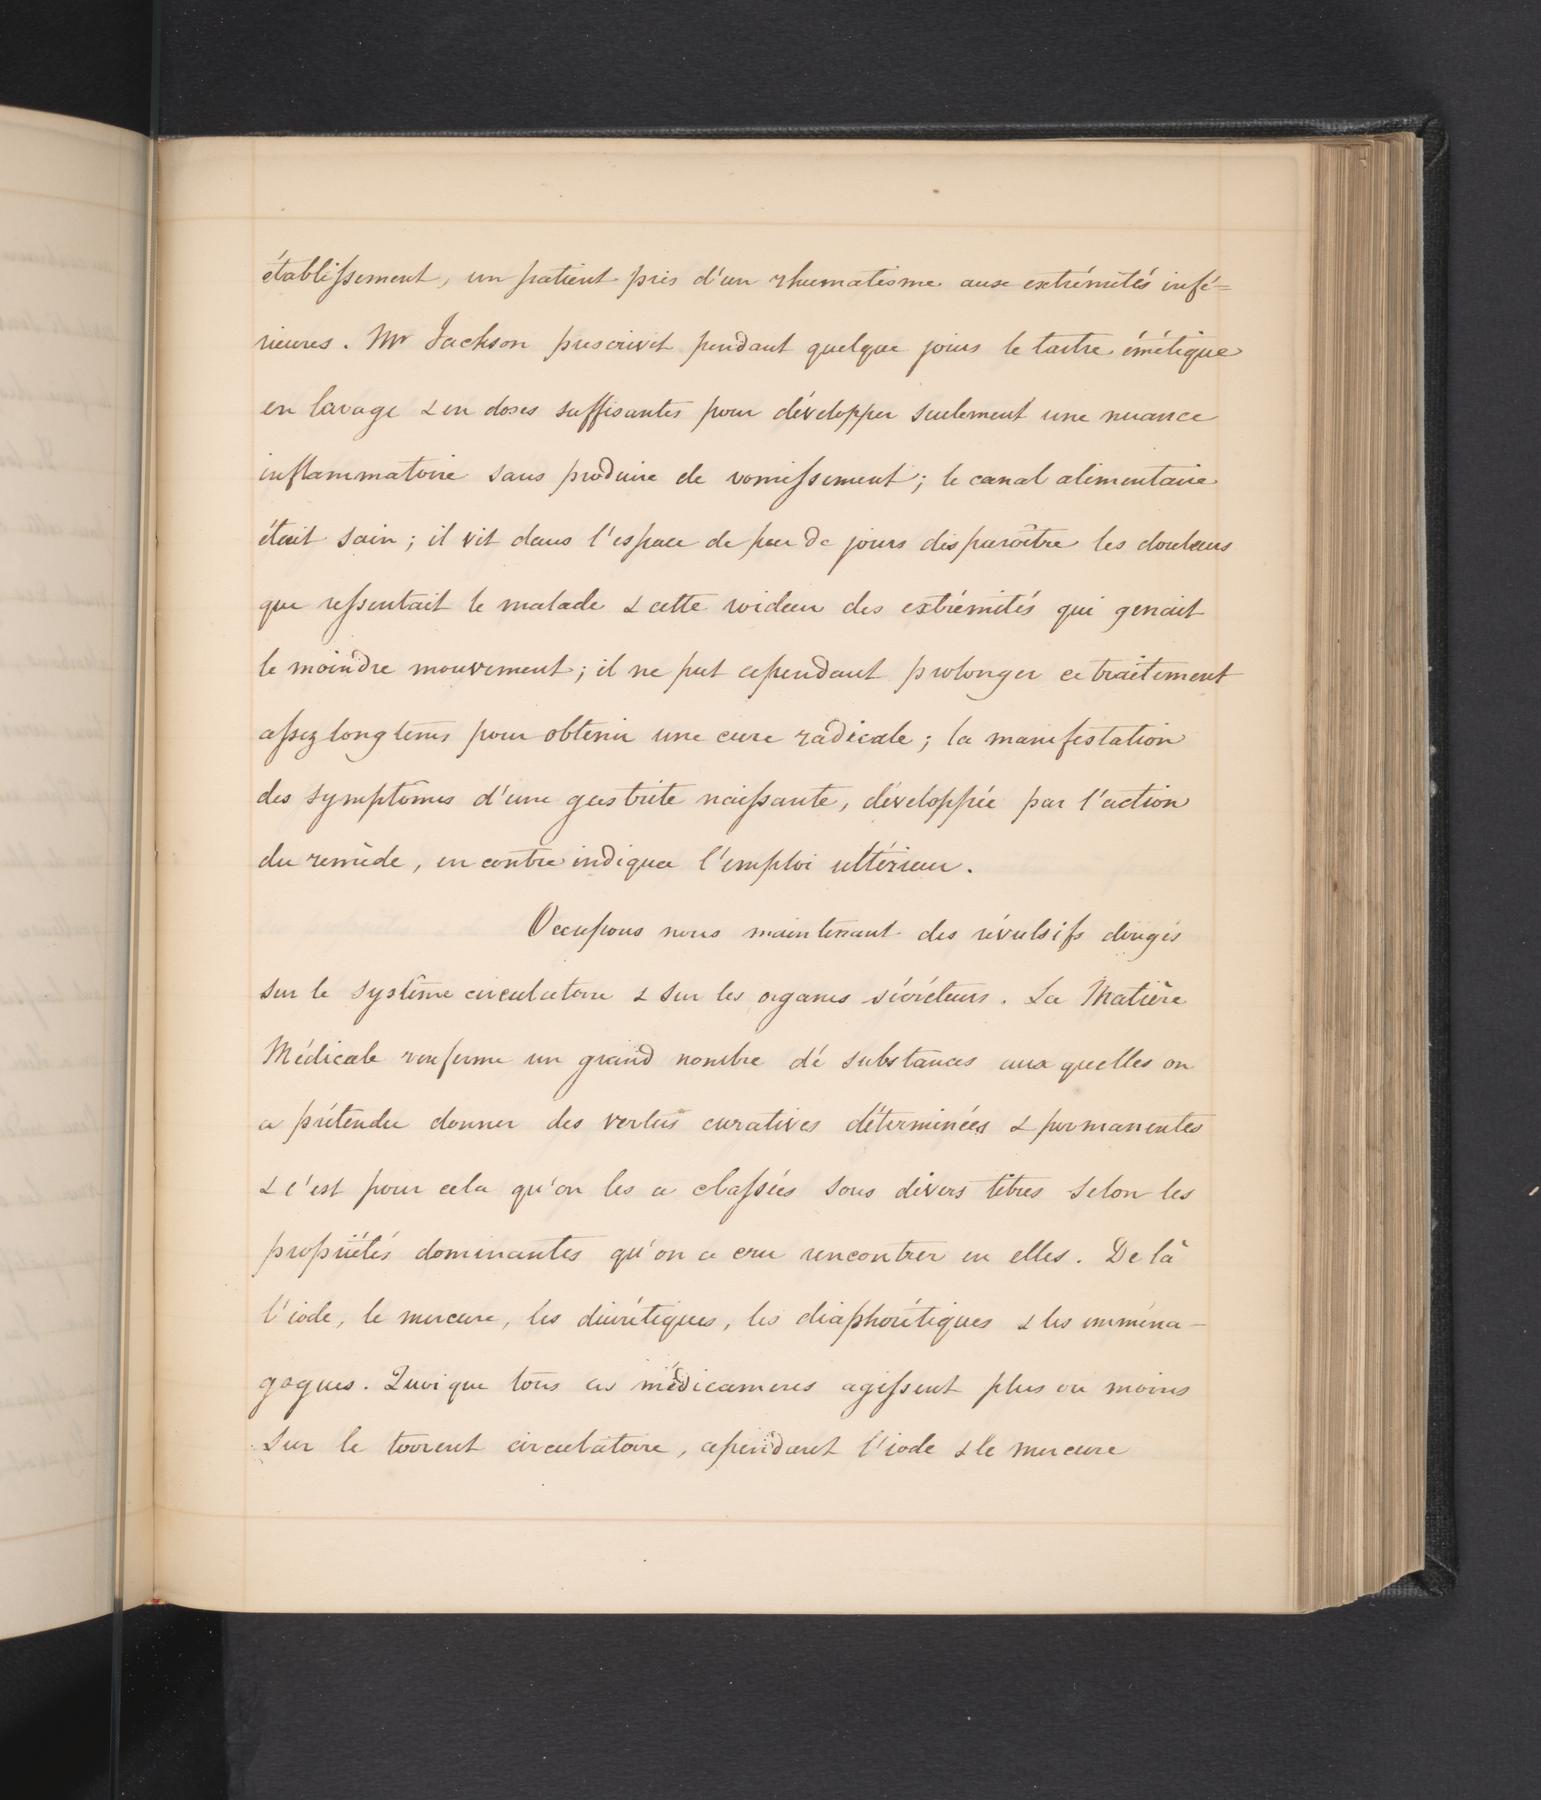 établissement, un patient pris d'un rhumatisme aux extrémités infé=
rieures. Mr Jackson prescrivit pendant quelque jours le tartre émétique
en lavage & en doses suffisantes pour développer seulement une nuance
inflammatoire sans produire de vomissement; le canal alimentaire
était sain; il vit dans l'espace de peu de jours disparaître les douleurs
que ressentait le malade & cette roideur des extrémités qui genait
le moindre mouvement; il ne put cependant prolonger ce traitement
assez longtems pour obtenir une cure radicale; la manifestation
des symptômes d'une gastrite naissante, développée par l'action
du remède, en contre indiqua l'emploi ultérieur.
Occupons nous maintenant des révulsifs dirigés
sur le systême circulatoire & sur les organes sécréteurs. La Matière
Médicale renferme un grand nombre dé substances aux quelles on
a prétendu donner des vertus curatives déterminées & permanentes
& c'est pour cela qu'on les a classées sous divers titres selon les
propriétés dominantes qu'on a cru rencontrer en elles. De là
l'iode, le mercure, les diurétiques, les diaphorétiques & les emména-
gogues. Quoique tous ces médicamens agissent plus ou moins
sur le torrent circulatoire, cependant l'iode & le mercure